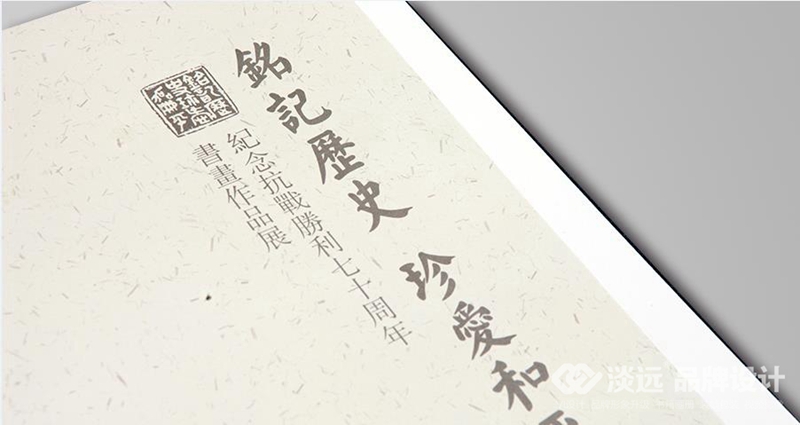 銘記歷史 珍愛和
紀念抗戰勝利七十周年
書畫作品展
淡远 品牌设计